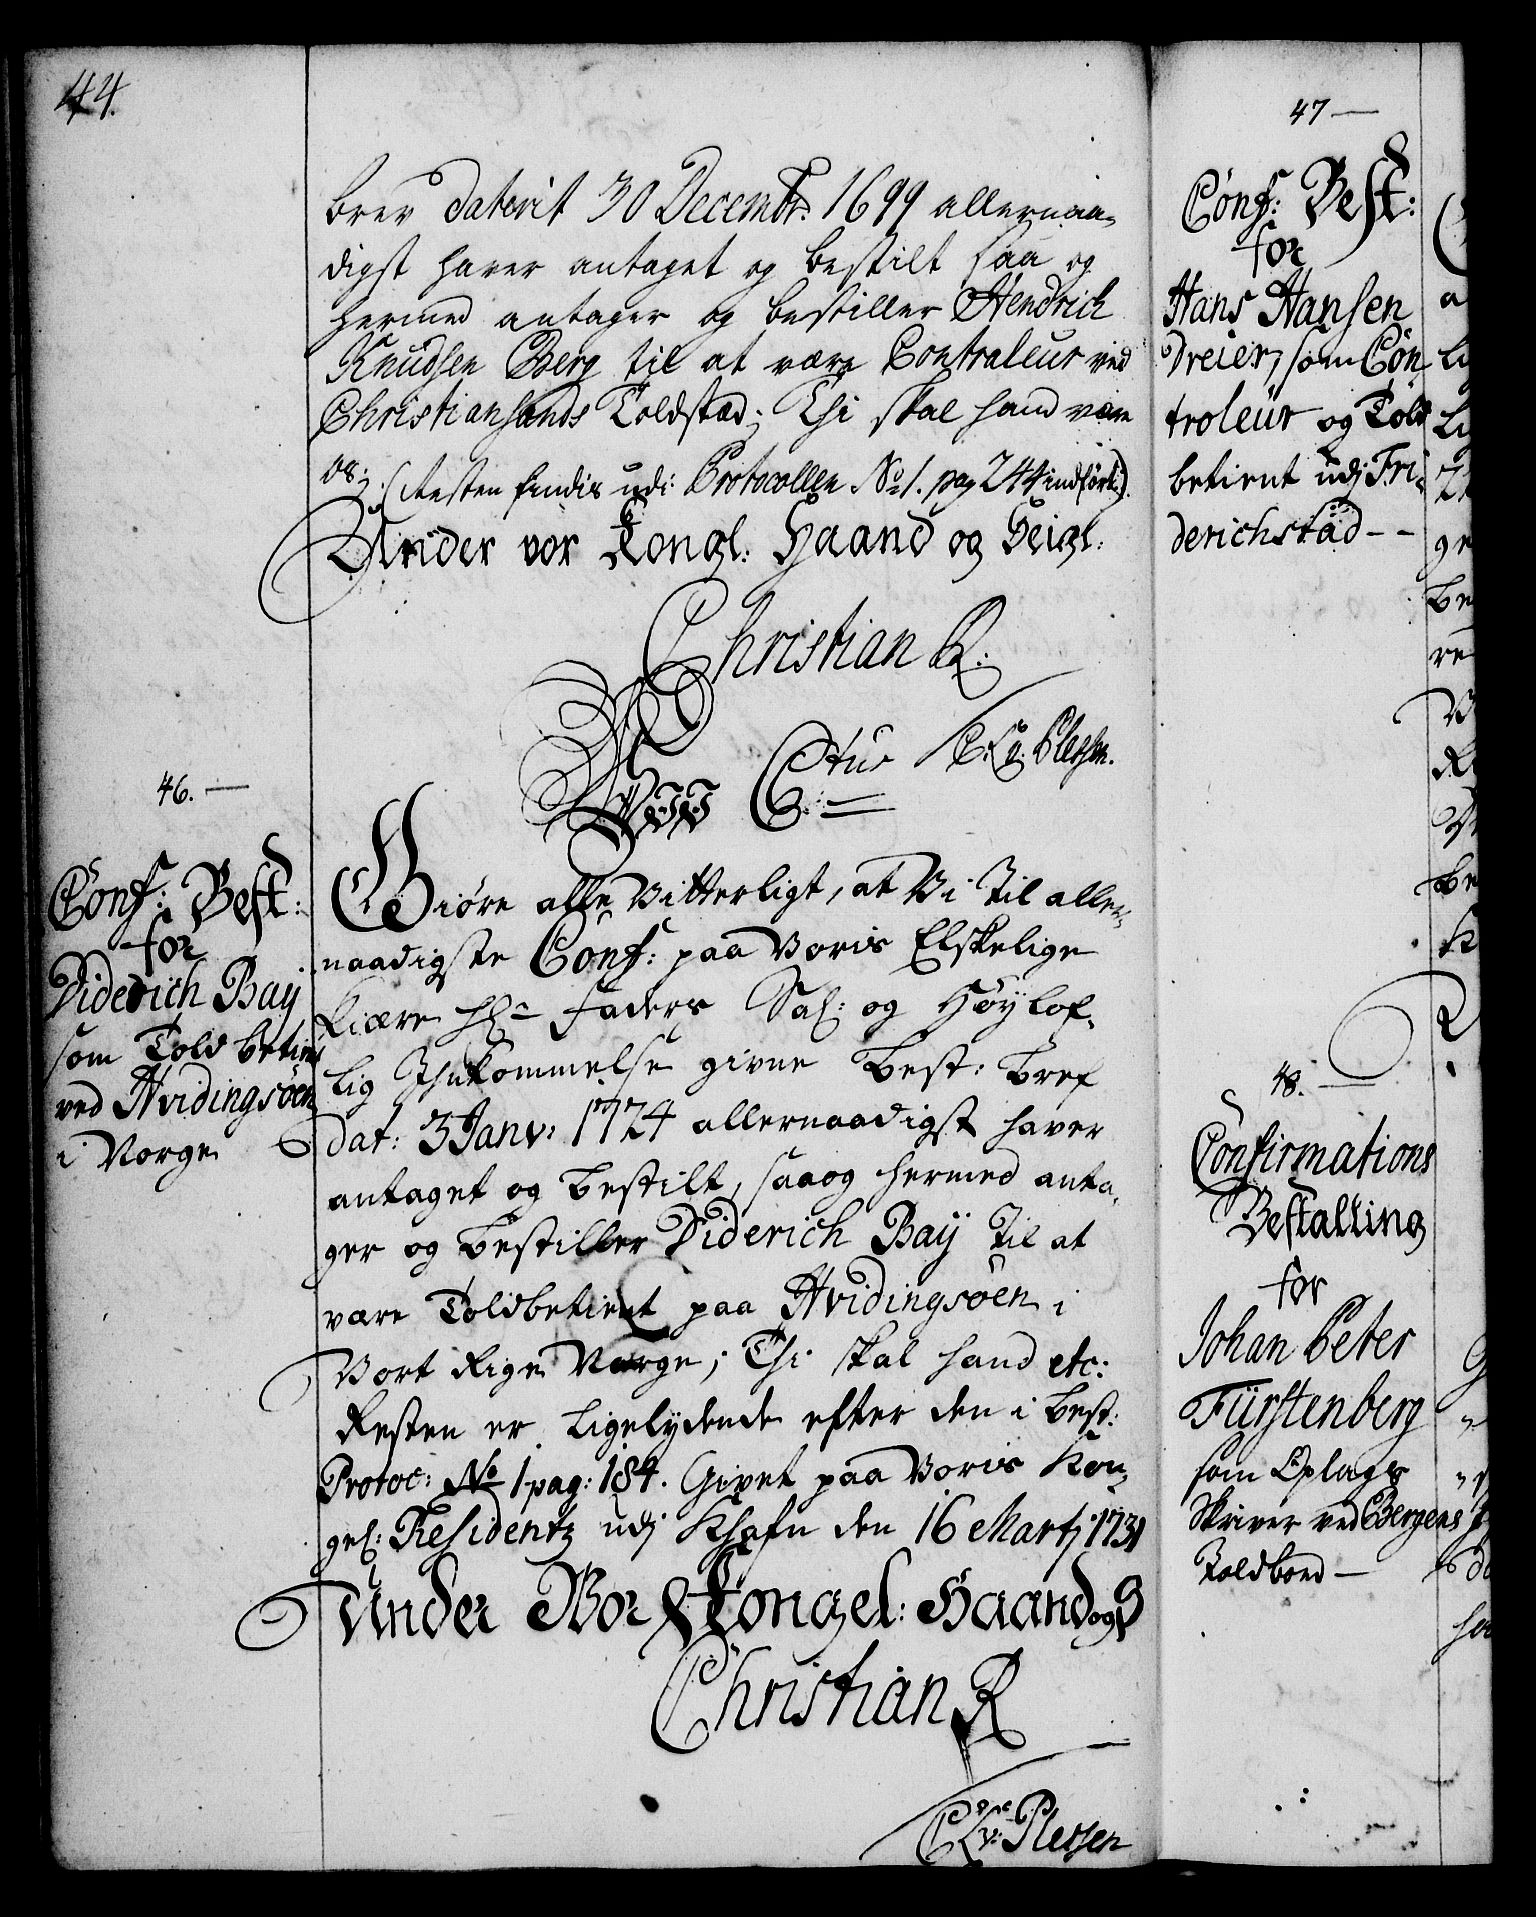 44.
brev daterit 30 Decembr. 1699 allernaa-
digst haver antaget og bestilt saa og
hermed antager og bestiller Hendrich
Knudsen Berg til at være Contraleur ved
Christiansands Toldsted; Thi skal hand være
os; (Resten findis udi Protocollen No 1. pag 244 indført:)
Under vor Kongl: Haand og Seigl:
Christian R:
C. Ch: v: Plessen.
46.
Conf: Best:
for
Diderich Bay
som Told betient
ved Hvidingsöen
i Norge
Wii C 6tus
G:
Giöre alle Vitterligt, at Vi Til aller-
naadigste Conf: paa Voris Elskelige
Kiære Hr Faders Sal: og Høylof-
lig Ihukommelse givne Best: Bref
dat: 3 Janv: 1724 allernaadigst haver
antaget og bestilt, saa og hermed anta-
ger og bestiller Diderich Bay Til at
være Toldbetient paa Hvidingsöen i
Vort Rige Norge; Thi skal hand etc:
Resten er ligelydende efter den i Best:
Protoc: No 1 pag: 184. Givet paa Voris Kon-
gel: Residentz udj Khafn den 16 Martj 1731
Under Vor Kongel: Haand og S
Christian R
C Av: Plessen
47
Conf: Best:
for
Hans Hansen
Dreier, som Con
troleur og Told
betient udj Fri-
derichstad
48.
Confirmations
Bestalling
for
Johan Peter
Fürstenberg
som Oplags
Skriver ved Bergens
Toldbod